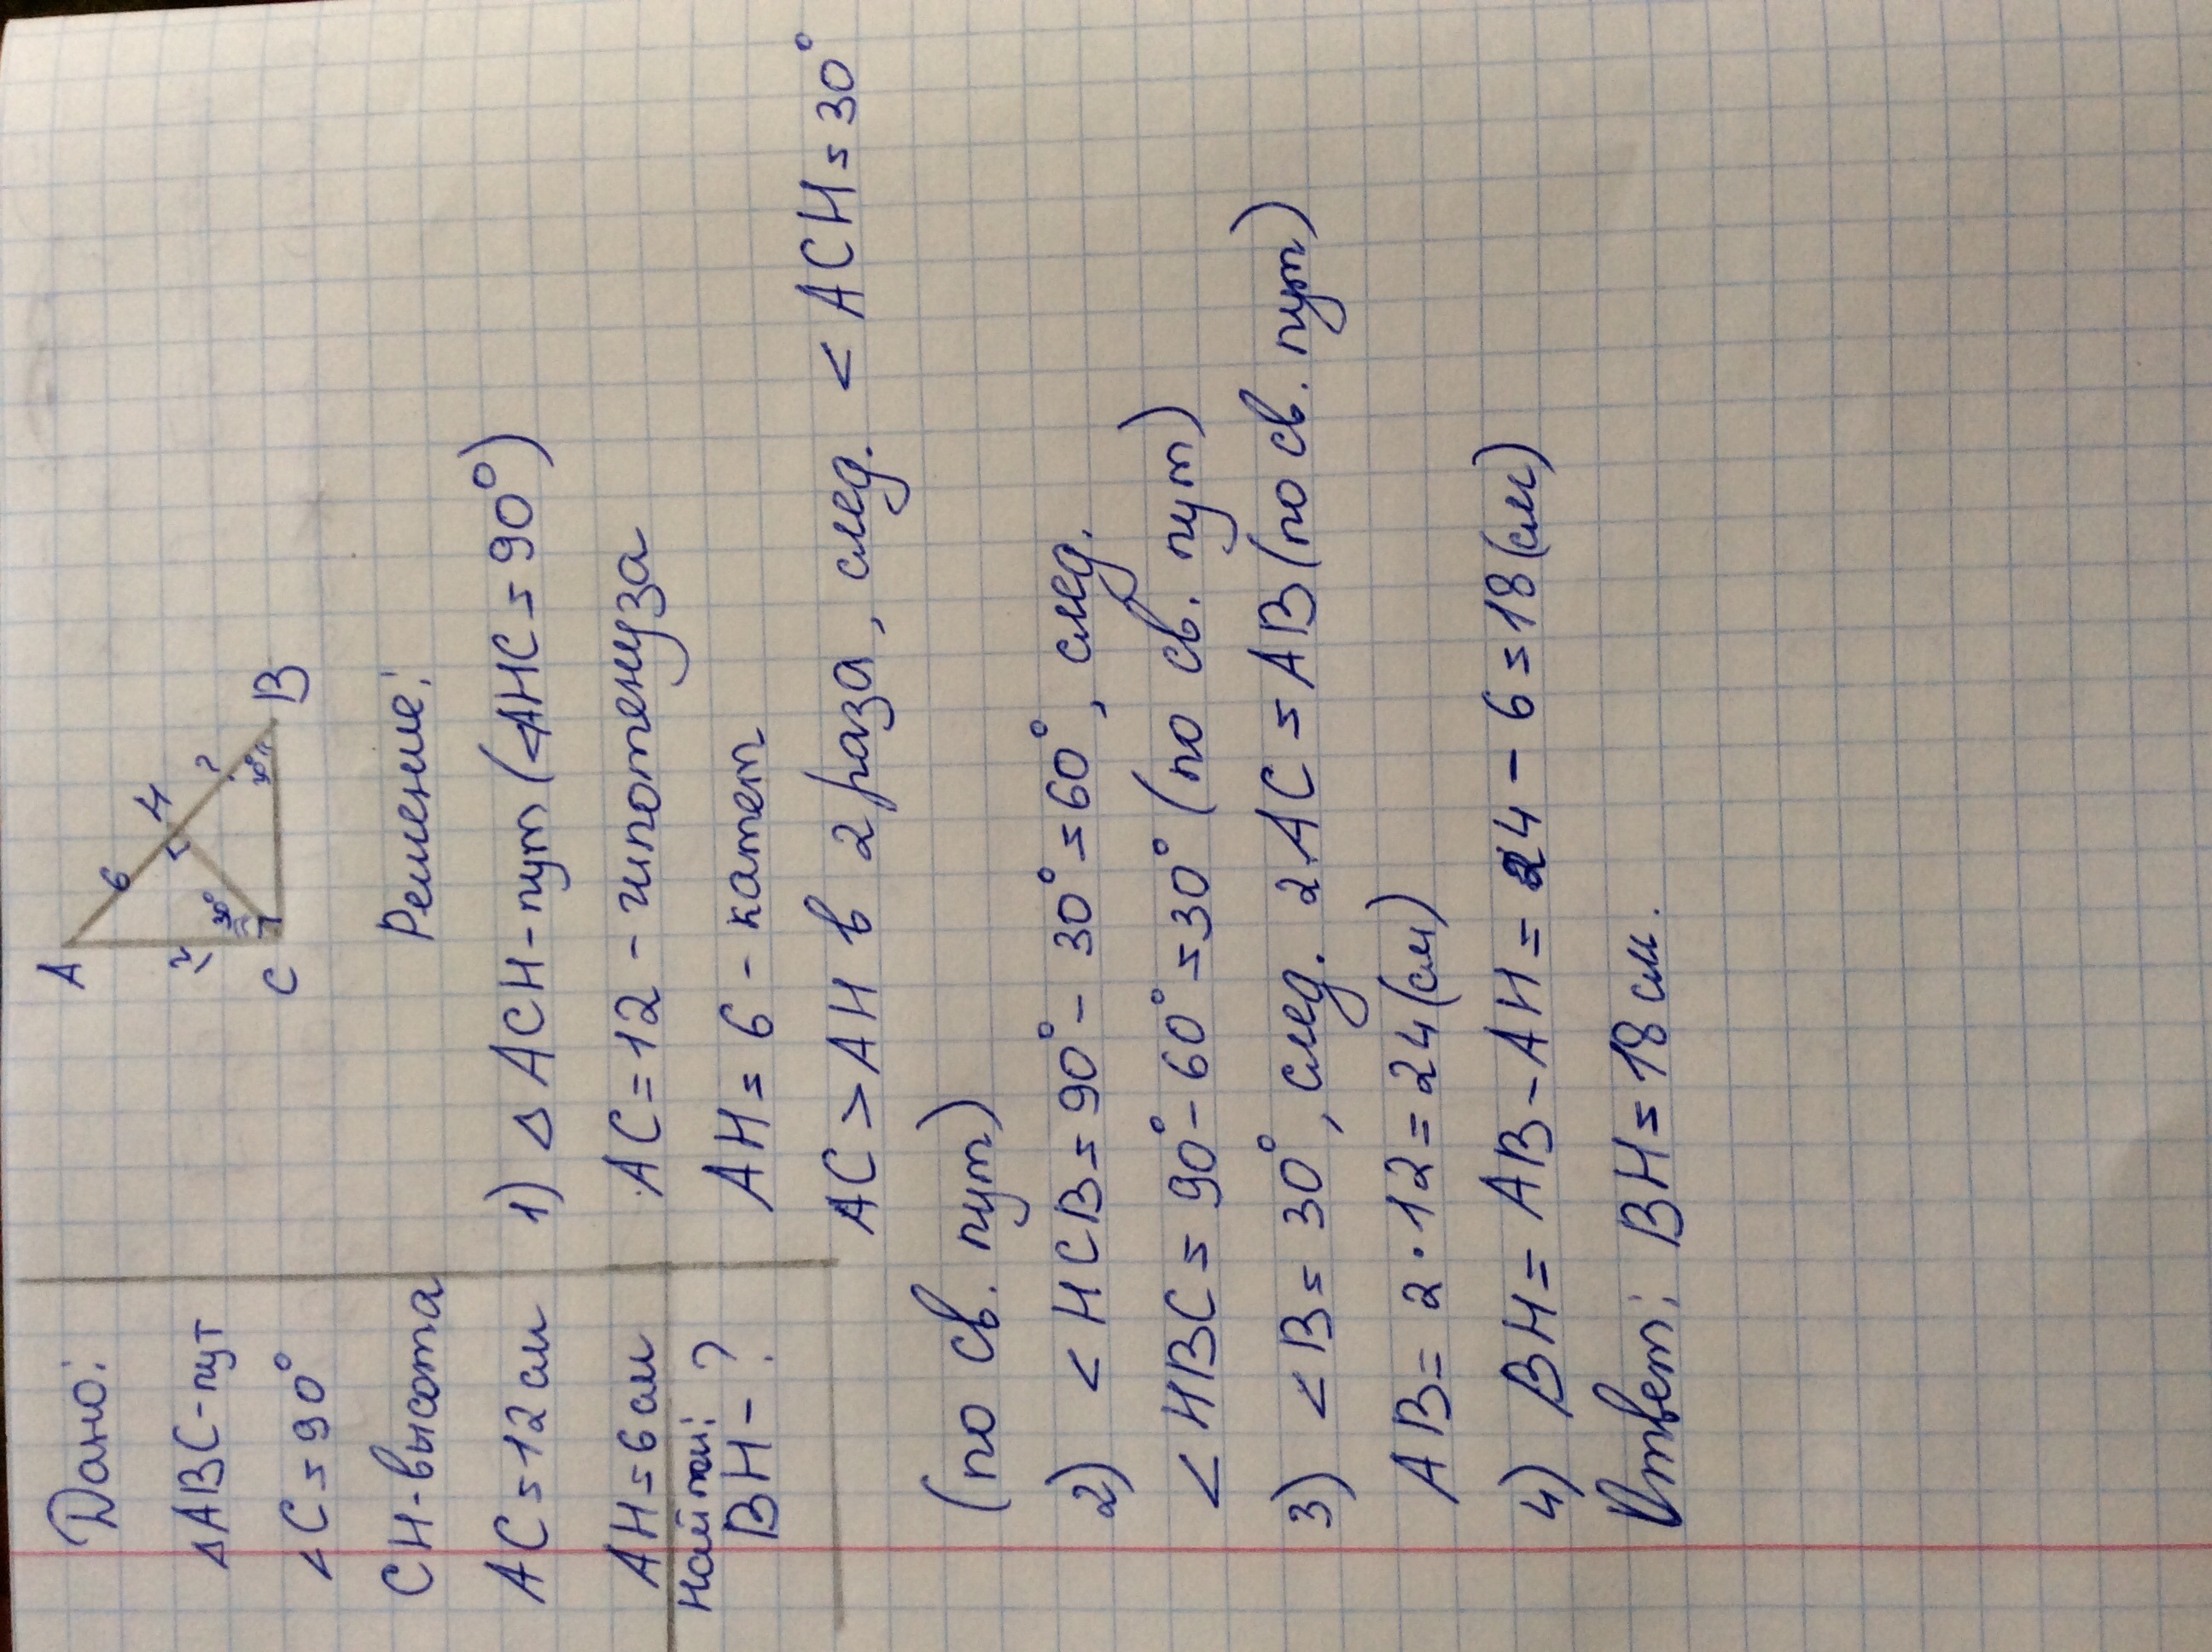 Дано:
△ABC-пут
∠C=90°
CH-высота
AC=12 см
AH=6 см
Найти:
BH-?
A
6
H
?
12
30°
30°
C
B
Решение:
1) △ACH-пут (∠AHC=90°)
AC=12-гипотенуза
AH=6-катет
AC>AH в 2 раза, след. <ACH=30°
(по св. пут)
2) <HCB=90°-30°=60°, след.
<HBC=90°-60°=30° (по св. пут)
3) <B=30°, след. 2AC=AB (по св. пут)
AB=2·12=24(см)
4) BH=AB-AH=24-6=18(см)
Ответ: BH=18 см.